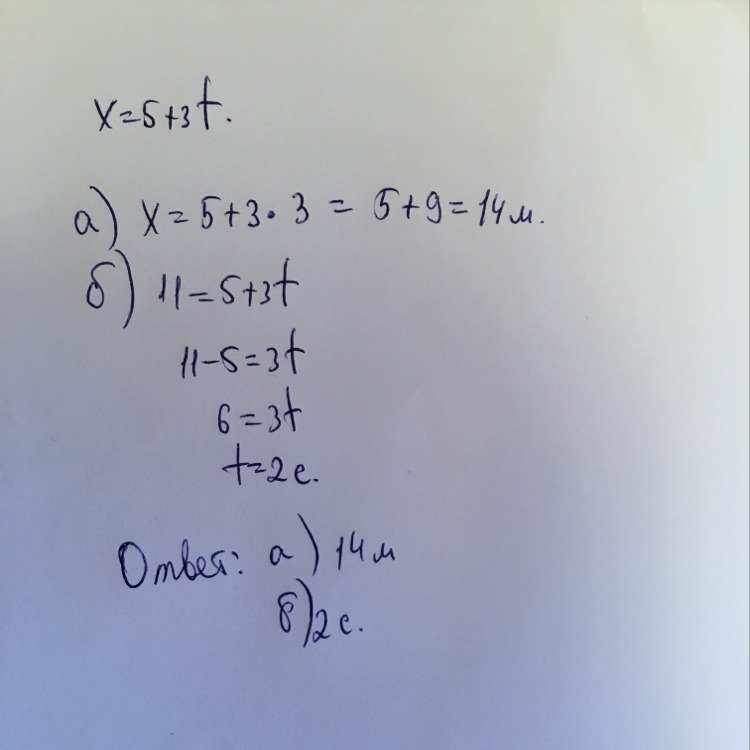 x=5+3t.
а) x=5+3·3 = 5+9=14м.
б) 11=5+3t
11-5=3t
6=3t
t=2с.
Ответ: а) 14м
б) 2с.